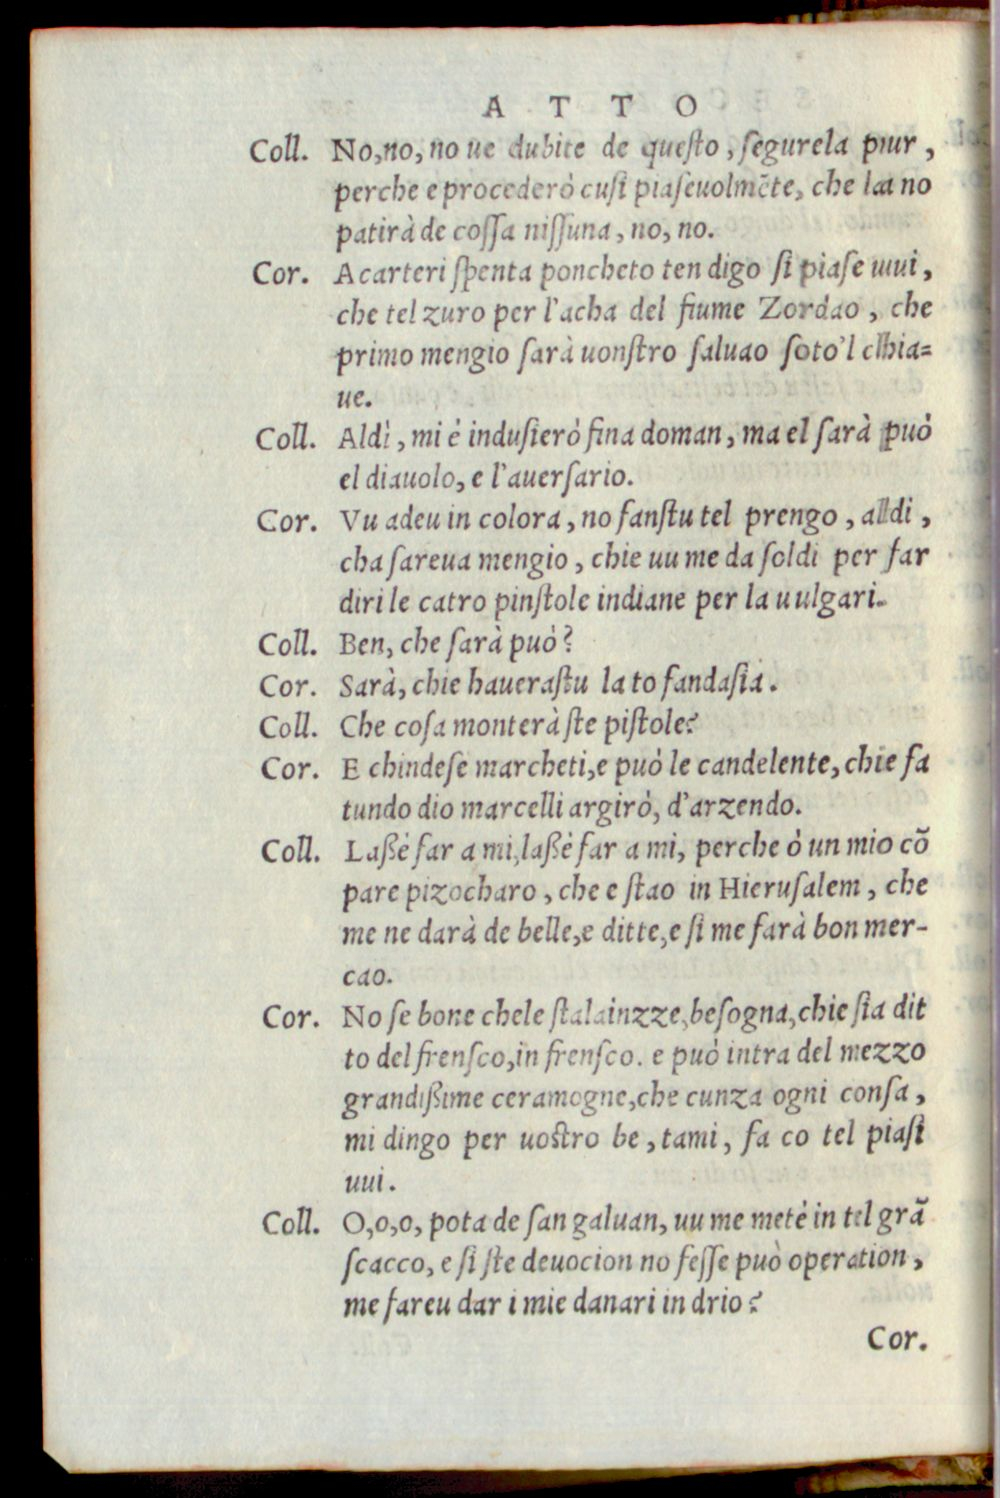 ATTO
Coll. No,no, no ue dubite de questo, segurela piur,
perche e procederò cusi piaseuolmẽte, che la no
patirà de cossa nissuna, no, no.
Cor. Acarteri spenta poncheto ten digo si piase uiui,
che tel zuro per l'acha del fiume Zordao, che
primo mengio sarà uonstro saluao soto'l chia=
ue.
Coll. Aldì, mi è indusierò fina doman, ma el sarà può
el diauolo, e l'auersario.
Cor. Vu adeu in colora, no fanstu tel prengo, aldi,
cha sareua mengio, chie uu me da soldi per far
diri le catro pinstole indiane per la uulgari.
Coll. Ben, che sarà può?
Cor. Sarà, chie hauerastu la to fandasia.
Coll. Che cosa monterà ste pistole?
Cor. E chindese marcheti,e può le candelente, chie fa
tundo dio marcelli argirò, d'arzendo.
Coll. Laßè far a mi,laßè far a mi, perche ò un mio cõ
pare pizocharo, che e stao in Hierusalem, che
me ne darà de belle,e ditte,e si me farà bon mer-
cao.
Cor. No se bone chele stalainzze,besogna,chie sia dit
to del frensco,in frensco. e può intra del mezzo
grandißime ceramogne,che cunza ogni consa,
mi dingo per uostro be, tami, fa co tel piasi
uui.
Coll. O,o,o, pota de san galuan, uu me metè in tel grã
scacco, e si ste deuocion no fesse può operation,
me fareu dar i mie danari in drio?
Cor.